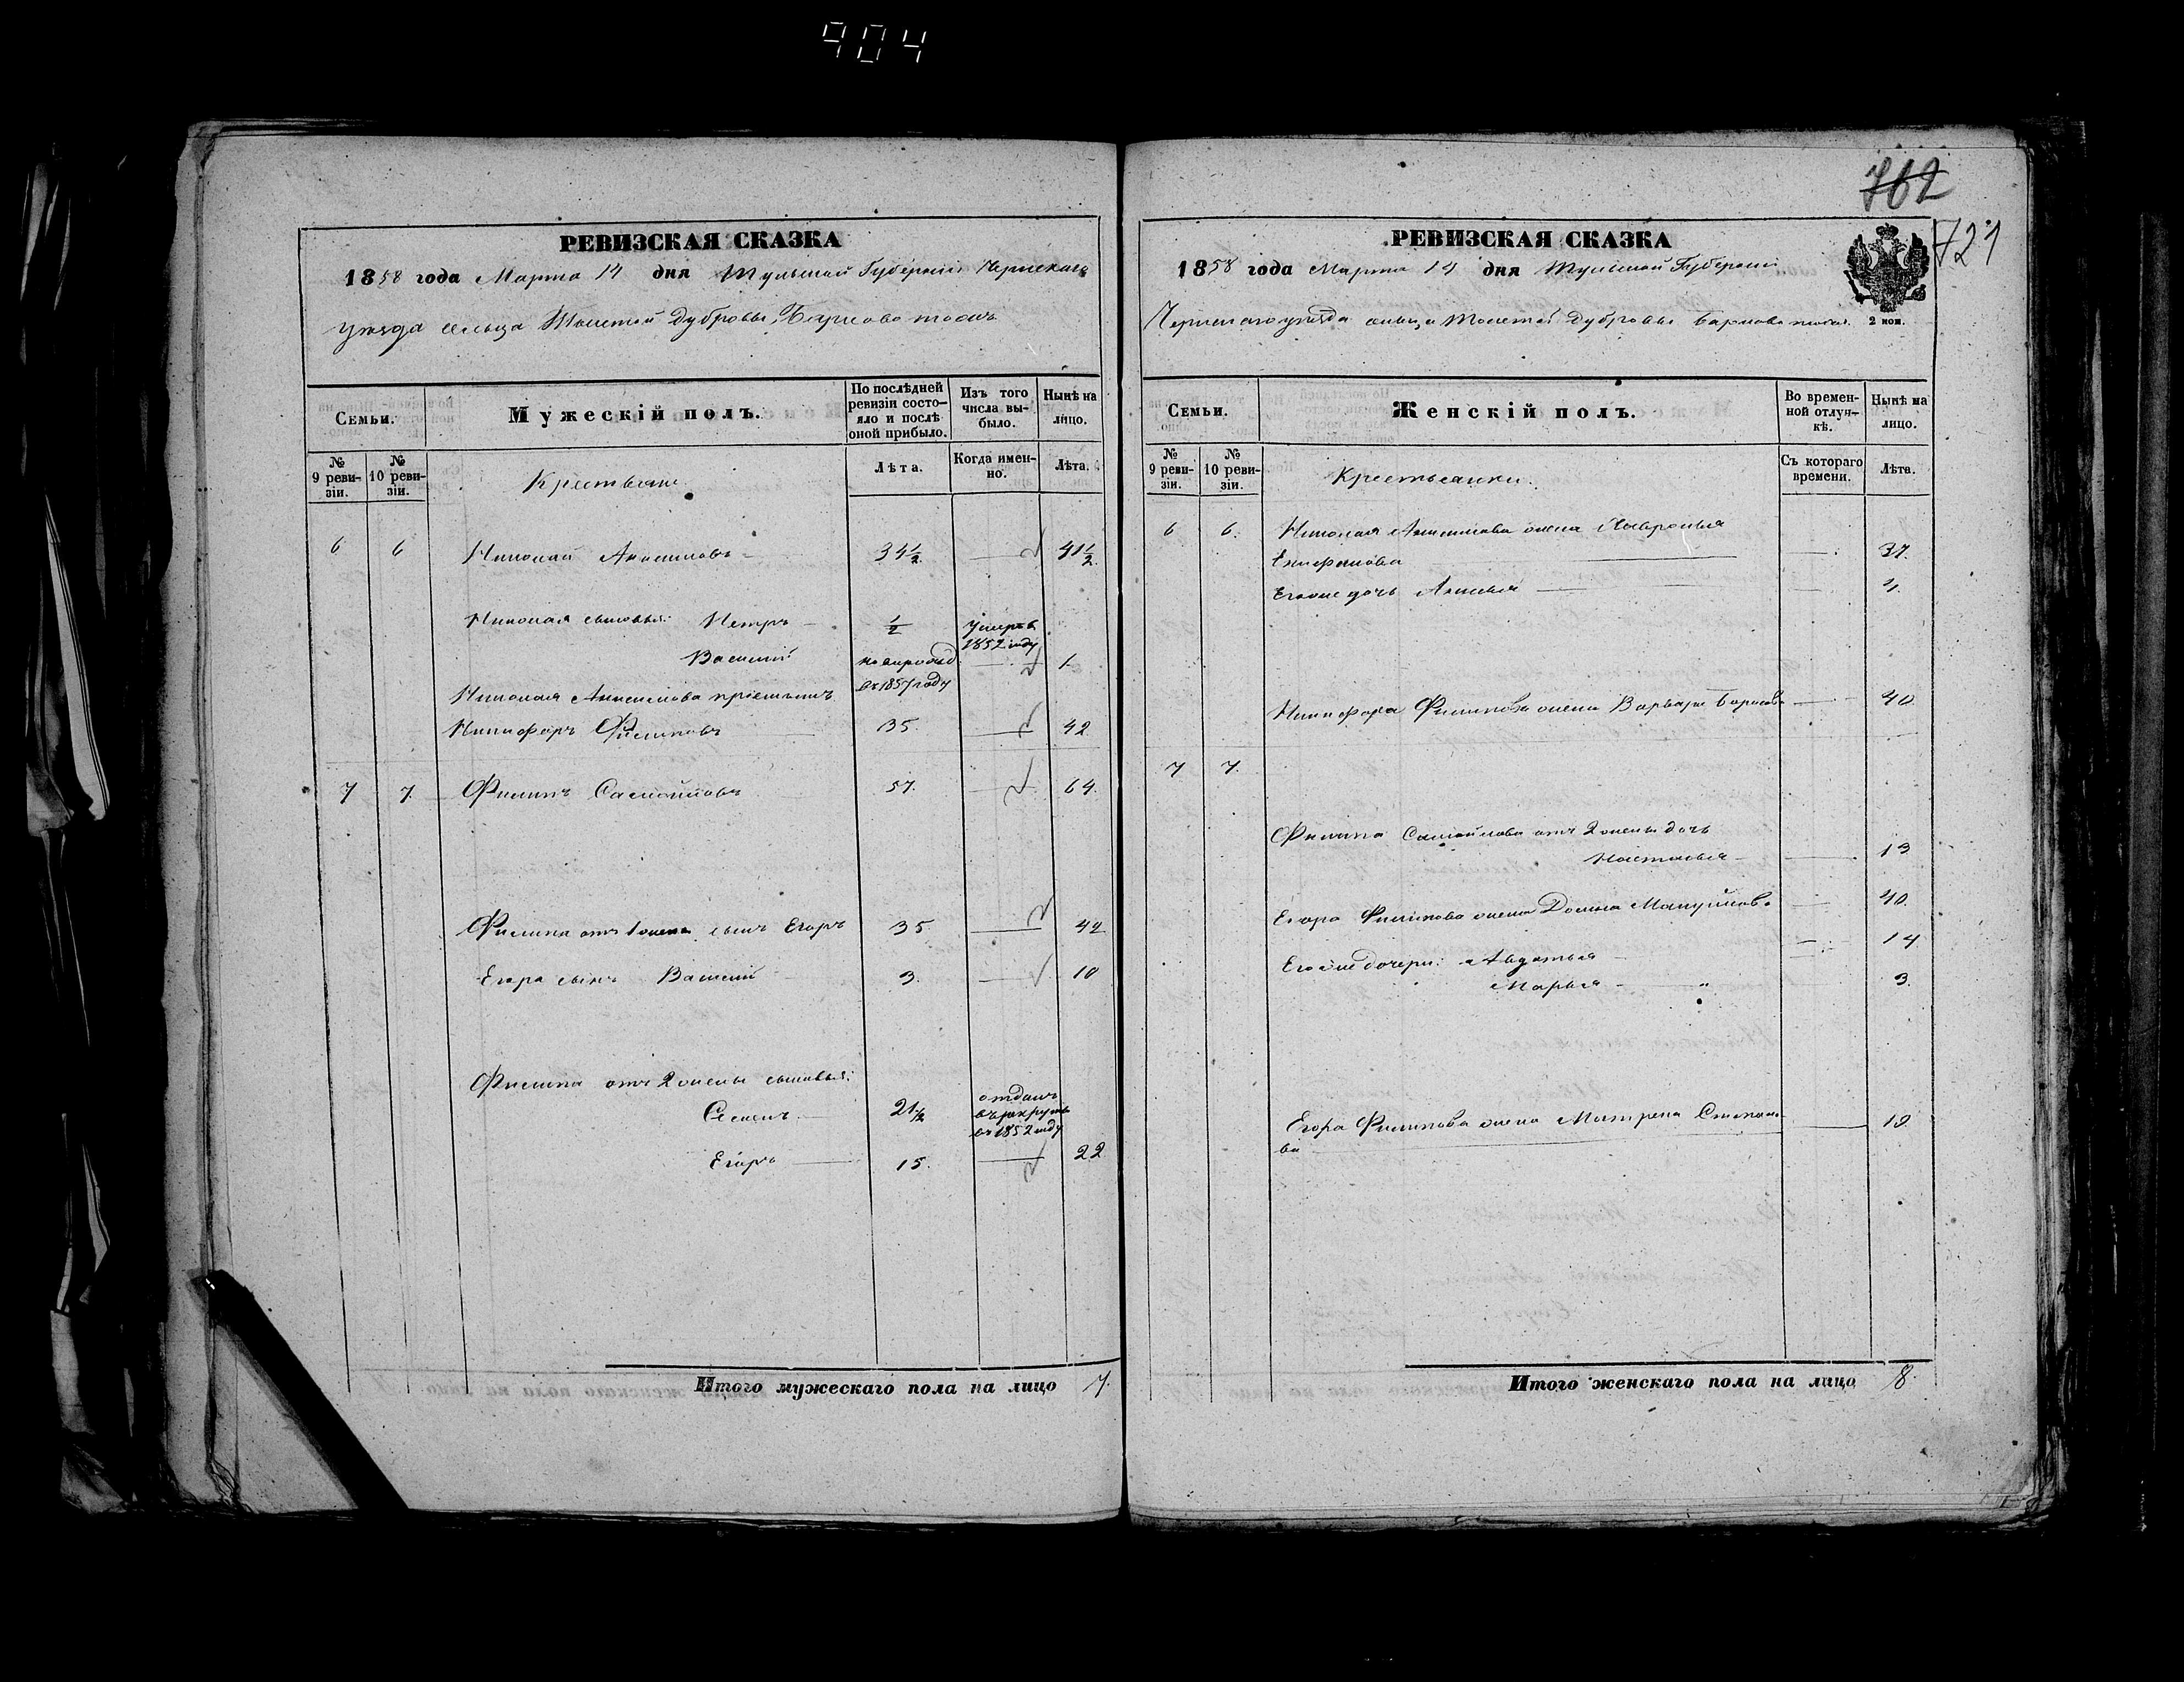 904
762
721
РЕВИЗСКАЯ СКАЗКА
1858 года Марта 14 дня Тульской Губерніи Чернскаго
уѣзда сельца Толстой Дубровы,
Семьи.
Мужескій полъ.
По послѣдней ревизіи состояло и послѣ оной прибыло.
Изъ того числа выбыло.
Нынѣ на лицо.
№ 9 ревизіи.
№ 10 ревизіи.
Крестьяне
Лѣта.
Когда именно.
Лѣта.
6 6 Николай Анисимовъ 34½ 41½
Николая сыновья: Петръ ½ Умеръ въ 1852 году
Василий новорожд въ 1857 году 1
Николая Анисимова пріемышъ
Никифоръ Филиповъ 35. 42
7 7. Филипъ Самойловъ 57. 64.
Филипа отъ 1 жены сынъ Егоръ 35 42
Егора сынъ Василий 3. 10
Филипа отъ 2 жены сыновья:
Семенъ 21½ отданъ въ рекруты въ 1852 году
Егоръ 15. 22
Итого мужескаго пола на лицо 7.
РЕВИЗСКАЯ СКАЗКА
1858 года Марта 14 дня Тульской Губерніи
Чернскаго уѣзда сельца Толстой Дубровы
2 коп.
Семьи.
Женскій полъ.
Во временной отлучкѣ.
Нынѣ на лицо.
№ 9 ревизіи.
№ 10 ревизіи.
Крестьянки.
Съ котораго времени.
Лѣта.
6 6. Николая Анисимова жена Хавронья
Епифанова 37.
Его же дочь Анисья 4.
Никифора Филипова жена Варвара Борисова 40
7 7.
Филипа Самойлова отъ 2 жены дочь
Настасья 13
Егора Филипова жена Домна Мануйлова 40.
Его же дочери: Авдотья 14
Марья " 3.
Егора Филипова жена Матрена Степанова 19.
Итого женскаго пола на лицо 8.